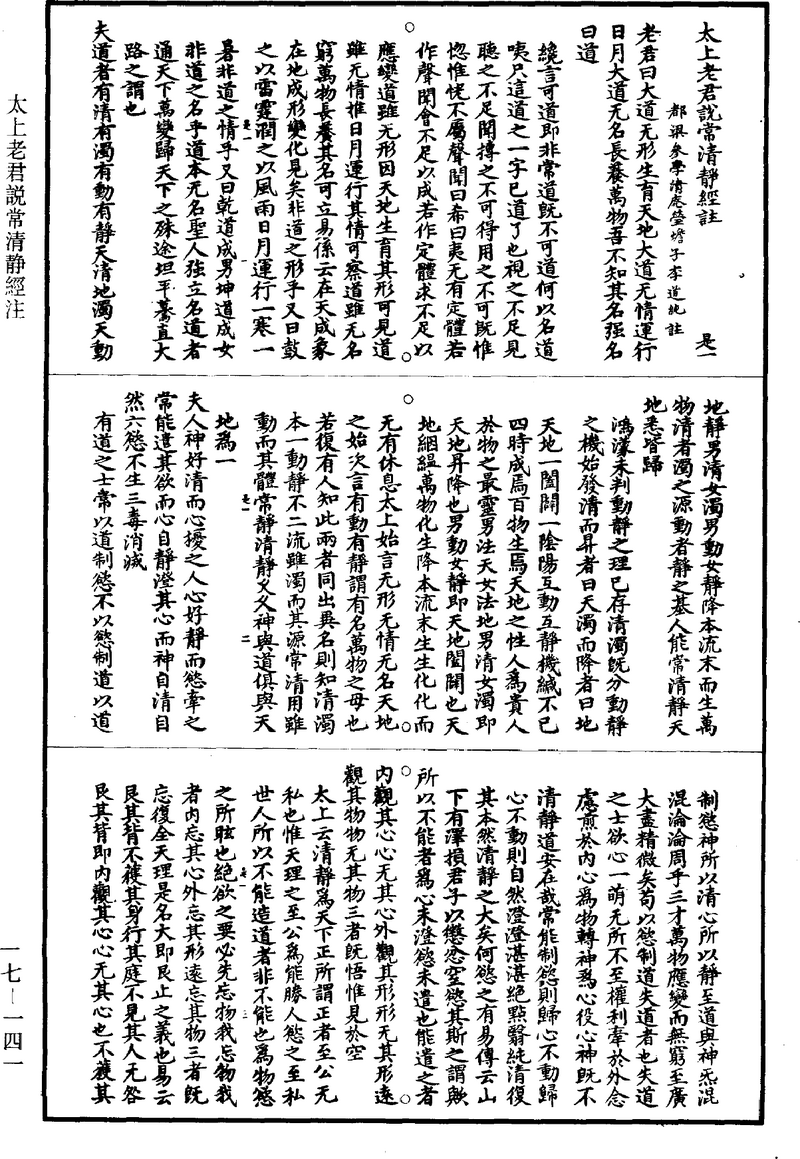 太上老君説常清靜經註
是一
都梁參學清虛瑩蟾子李道純註
老君曰大道无形生育天地大道无情運行
日月大道无名長養萬物吾不知其名强名
曰道
纔言可道即非常道既不可道何以名道
咦只這道之一字已道了也視之不足見
聽之不足聞摶之不可得用之不可既惟
惚惟恍不屬聲聞曰希曰夷无有定體若
作聲聞會不足以成若作定體求不足以
應變道雖无形因天地生育其形可見道
雖无情推日月運行其情可察道雖无名
窮萬物長養其名可立易係云在天成象
在地成形變化見矣非道之形乎又曰鼓
之以雷霆潤之以風雨日月運行一寒一
暑非道之情乎又曰乾道成男坤道成女
非道之名乎道本无名聖人强立名道者
通天下萬變歸天下之殊途坦平驀直大
路之謂也
夫道者有清有濁有動有靜天清地濁天動
地靜男清女濁男動女靜降本流末而生萬
物清者濁之源動者靜之基人能常清靜天
地悉皆歸
鴻濛未判動靜之理已存清濁既分動靜
之機始發清而昇者曰天濁而降者曰地
天地一闔闢一陰陽互動互靜機緘不已
四時成焉百物生焉天地之性人爲貴人
於物之最靈男法天女法地男清女濁即
天地昇降也男動女靜即天地闔闢也天
地絪緼萬物化生降本流末生生化化而
无有休息太上始言无形无情无名天地
之始次言有動有靜謂有名萬物之母也
若復有人知此兩者同出異名則知清濁
本一動靜不二流雖濁而其源常清用雖
動而其體常靜清靜久久神與道俱與天
地爲一
夫人神好清而心擾之人心好靜而慾牽之
常能遣其欲而心自靜澄其心而神自清自
然六慾不生三毒消滅
有道之士常以道制慾不以慾制道以道
制慾神所以清心所以靜至道與神炁混
混淪淪周乎三才萬物應變而無窮至廣
大盡精微矣苟以慾制道失道者也失道
之士欲心一萌无所不至權利牽於外念
慮煎於內心爲物轉神爲心役心神既不
清靜道安在哉常能制慾則歸心不動歸
心不動則自然澄澄湛湛絕點翳純清復
其本然清靜之大矣何慾之有易傳云山
下有澤損君子以懲忿窒慾其斯之謂歟
所以不能者爲心未澄慾未遣也能遣之者
內觀其心心无其心外觀其形形无其形遠
觀其物物无其物三者既悟惟見於空
太上云清靜爲天下正所謂正者至公无
私也惟天理之至公爲能勝人慾之至私
世人所以不能造道者非不能也爲物慾
之所眩也絕欲之要必先忘物我忘物我
者內忘其心外忘其形遠忘其物三者既
忘復全天理是名大即艮止之義也易云
艮其背不獲其身行其庭不見其人无咎
艮其背即內觀其心心无其心也不獲其
是一
一
是一
二
是一
三
太上老君説常清靜經注
一七—一四一